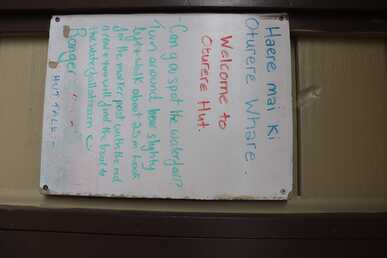 Haere mai Ki
Oturere Whare.
Welcome to
Oturere Hut.
Can you spot the waterfall?
Turn around bear slightly
left & walk about 25m look
for the marker post with the red
arrow & you will find the trail to
the waterfall stream
Ranger
HUT TALK